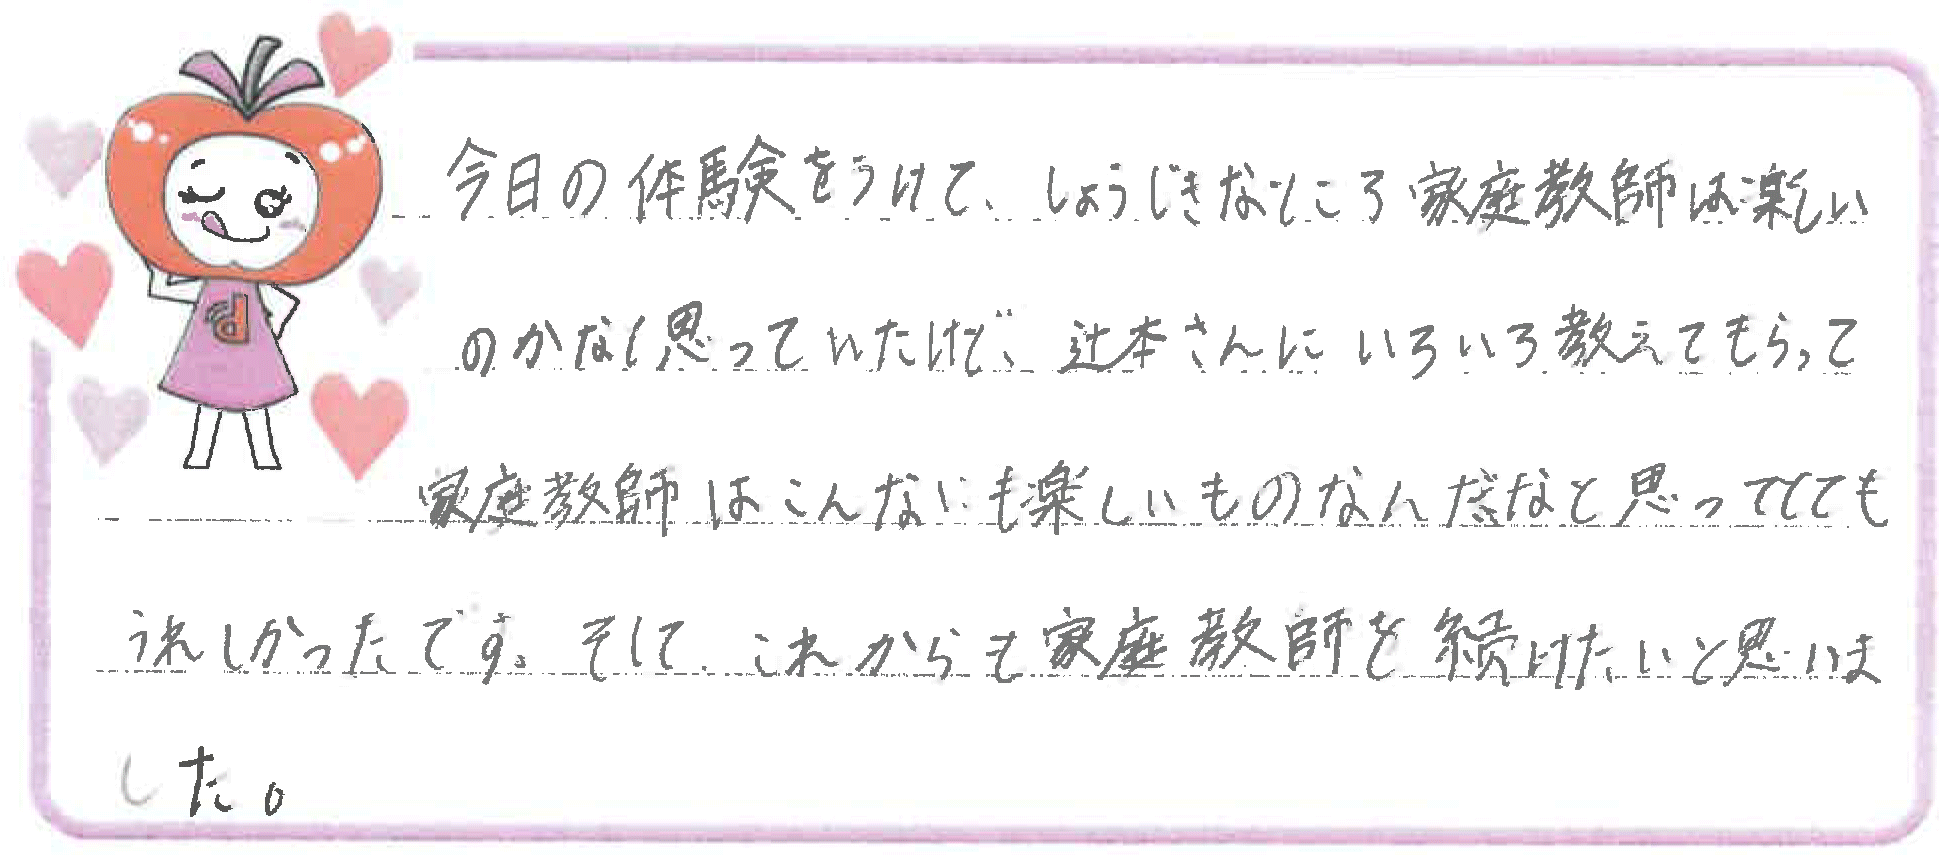 今日の体験をうけて、しょうじきなところ家庭教師は楽しい
のかなと思っていたけど、辻本さんにいろいろ教えてもらって
家庭教師はこんなにも楽しいものなんだなと思ってとても
うれしかったです。そして、これからも家庭教師を続けたいと思いま
した。